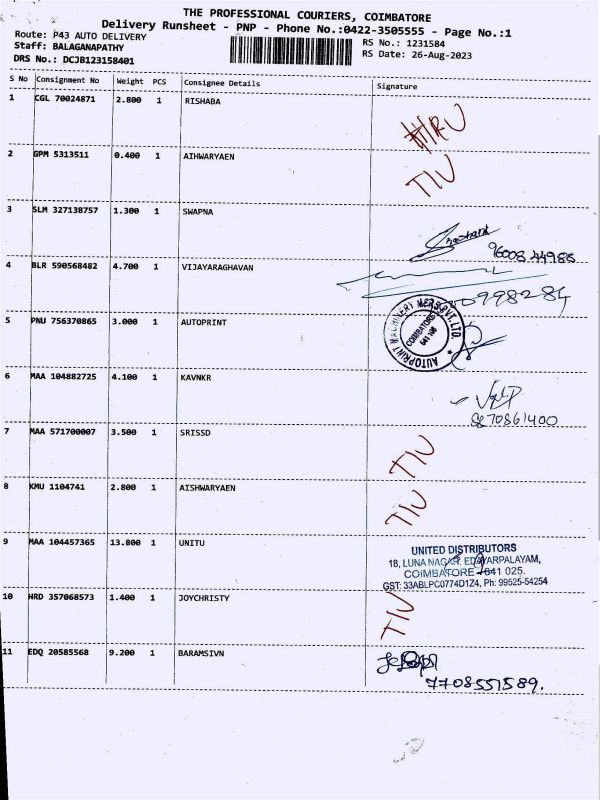 THE PROFESSIONAL COURIERS, COIMBATORE
Delivery Runsheet - PNP - Phone No.:0422-3505555 - Page No.:1
Route: P43 AUTO DELIVERY
RS No.: 1231584
Staff: BALAGANAPATHY
RS Date: 26-Aug-2023
DRS No.: DCJB123158401
S No Consignment No Weight PCS Consignee Details Signature
1 CGL 70024871 2.800 1 RISHABA
2 GPM 5313511 0.400 1 AIHWARYAEN
TIU
3 SLM 327138757 1.300 1 SWAPNA
Shashank
96008 44986
4 BLR 590568482 4.700 1 VIJAYARAGHAVAN
5 PNU 756370865 3.000 1 AUTOPRINT
AUTOPRINT MACHINERY MFRS PVT. LTD.
COIMBATORE
6 MAA 104882725 4.100 1 KAVNKR
8870861400
7 MAA 571700007 3.500 1 SRISSD
TIU
8 KMU 1104741 2.800 1 AISHWARYAEN
TIU
9 MAA 104457365 13.800 1 UNITU
UNITED DISTRIBUTORS
18, LUNA NAGAR, EDAYARPALAYAM,
COIMBATORE - 641 025.
GST: 33ABLPC0774D1Z4, Ph: 99525-54254
10 HRD 357068573 1.400 1 JOYCHRISTY
TIU
11 EDQ 20585568 9.200 1 BARAMSIVN
7708551589.